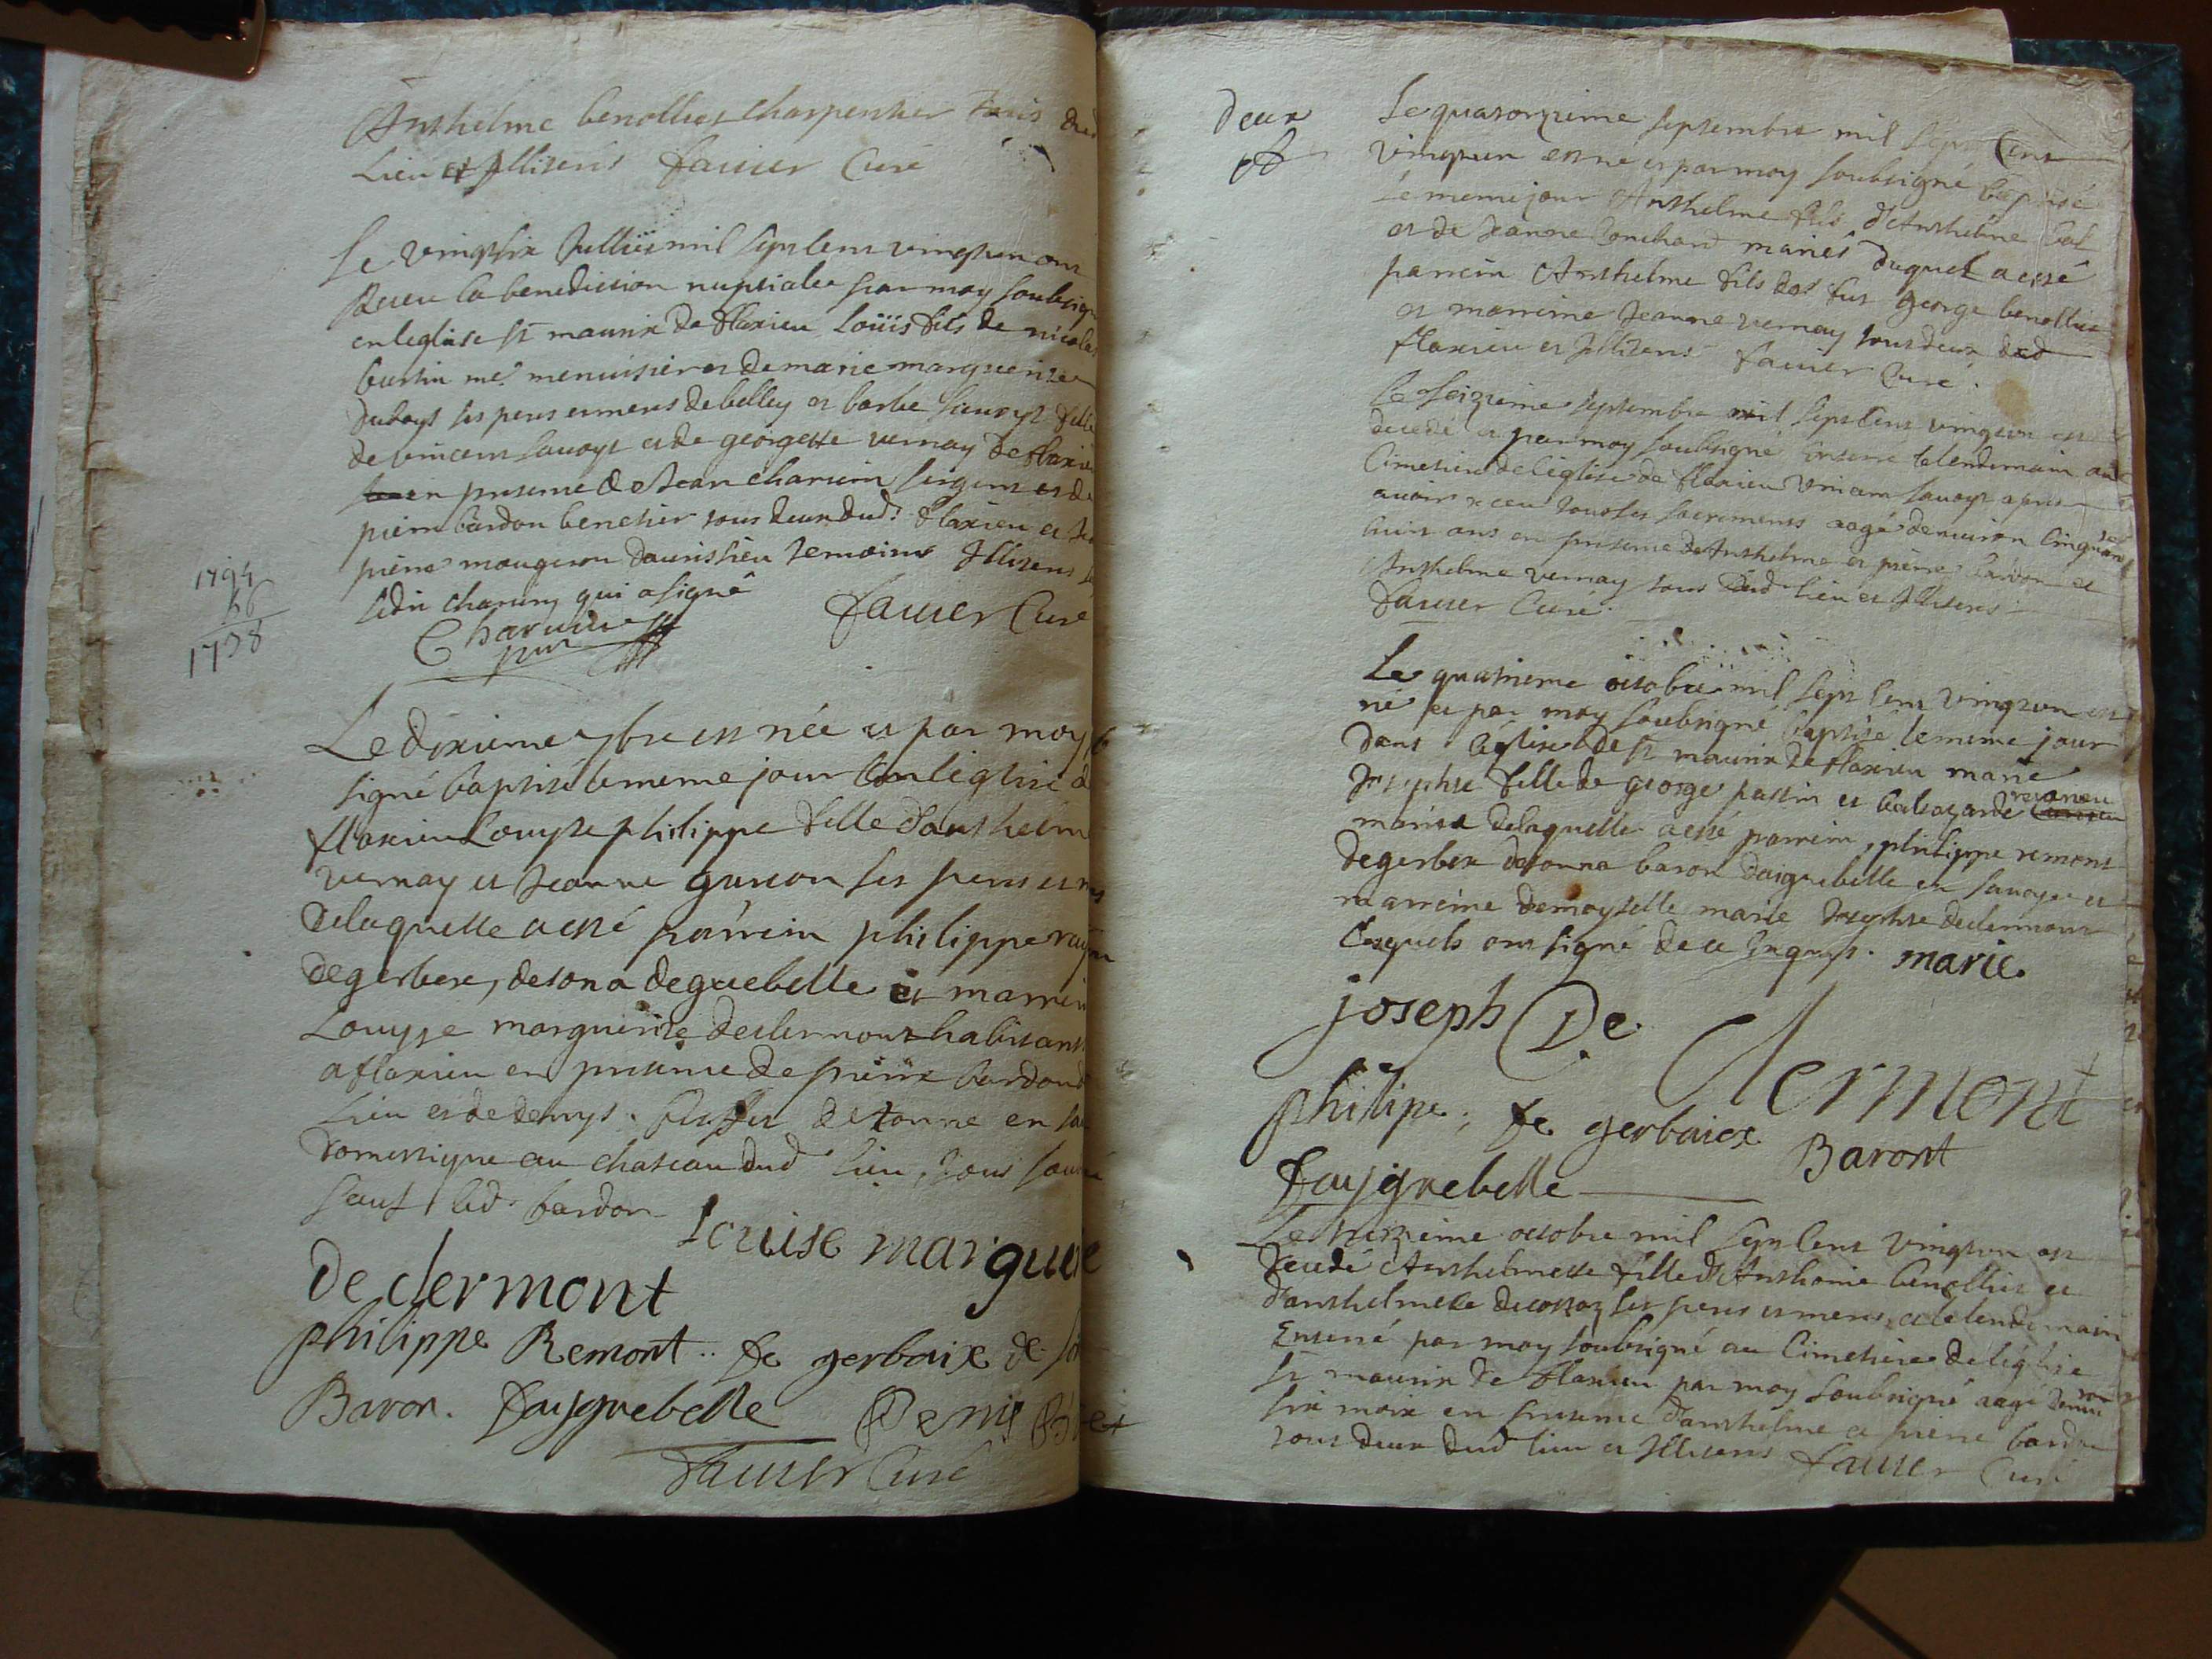 Anthelme benollier charpentier tous dud
Lieu et Illiterés favier Curé
Le vingtsix Juillet mil sept cens vingtun ont
Receu la benediction nuptiale par moy soubsigné
en leglise St maurix de flaxieu Loüis fils de nicolas
me menuisier et de marie marguerite
duboys ses peres et meres de belley et barbe fille
de vincent savoyt et de georgette vernay de flaxieu
en presence de Jean charvin sergent et de
pierre bardon benetier tous deux dud flaxieu et de
pierre mougeron temoins Illiterés
ledit charvin qui a signé
Charvin favier Curé
1794
56
1738
Le dixieme 7bre est née et par moy
signé baptisé le meme jour en leglise de
flaxieu Louyse philippe fille danthelme
vernay et Jeanne guxon ses peres et meres
delaquelle a esté parrein philippe
de gerbere, de sona deguebelle et marreine
Louyse marguerite declermont habitant
a flaxieu en presence de pierre bardon
Lieu et de denys de en
domestique au chateau dud lieu, tous
sauf led bardon
Louise marguerite
De clermont
philippe Remont .. de gerbaix de
Baron. dayguebelle Denis
favier Curé
deux
Le quatorzieme septembre mil sept Cens
vingtun est né et par moy soubsigné baptisé
le meme jour Anthelme fils d'Anthelme
et de Jeanne mariés duquel a esté
parrein Anthelme fils de fut george benollier
et marreine Jeanne vernay tous deux dud
flaxieu et Illiterés favier Curé.
Le seizieme septembre mil sept Cens vingtun est
decedé et par moy soubsigné enterré le lendemain au
Cimetiere de l'église de flaxieu vincent savoyt apres
avoir receu tous les sacrements aagé d'environ Cinquante
huit ans en presence de Anthelme et pierre bardon et
Anthelme vernay tous dud lieu et Illiterés
favier Curé.
Le quatrieme octobre mil sept Cens vingtun est
né et par moy soubsigné baptisé le meme jour
dans l'église de St maurix de flaxieu marie
Josephte fille de george et balthazarde
mariés delaquelle a esté parrein, philippe remont
de gerbex desonna baron daiguebelle en savoye et
marreine demoyselle marie Josephte declermont
Lesquels ont signé de ce Enquis. marie
joseph De Clermont
philipe, de gerbaix Baront
dayguebelle
Le treizieme octobre mil sept Cens vingtun est
decedé Anthelmette fille d'Anthoine benollier et
d'anthelmette ses peres et meres, et le lendemain
Enterré par moy soubsigné au Cimetiere de leglise
St maurix de flaxieu par moy soubsigné aagé d'environ
six mois en presence d'anthelme et pierre bardon
tous deux dud lieu et Illiterés favier Curé